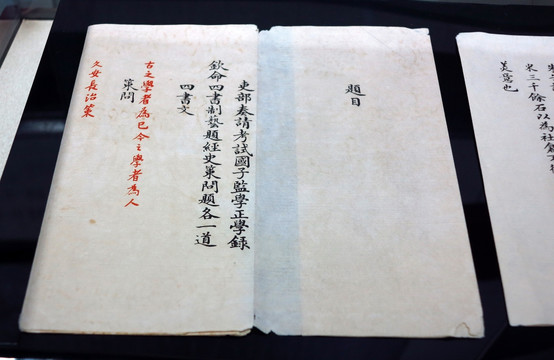 題目
吏部奏請考試國子監學正學錄
欽命四書制藝題經史策問題各一道
四書文
古之學者為已今之學者為人
策問
久安長治策
米三千餘石以為社倉
美意也